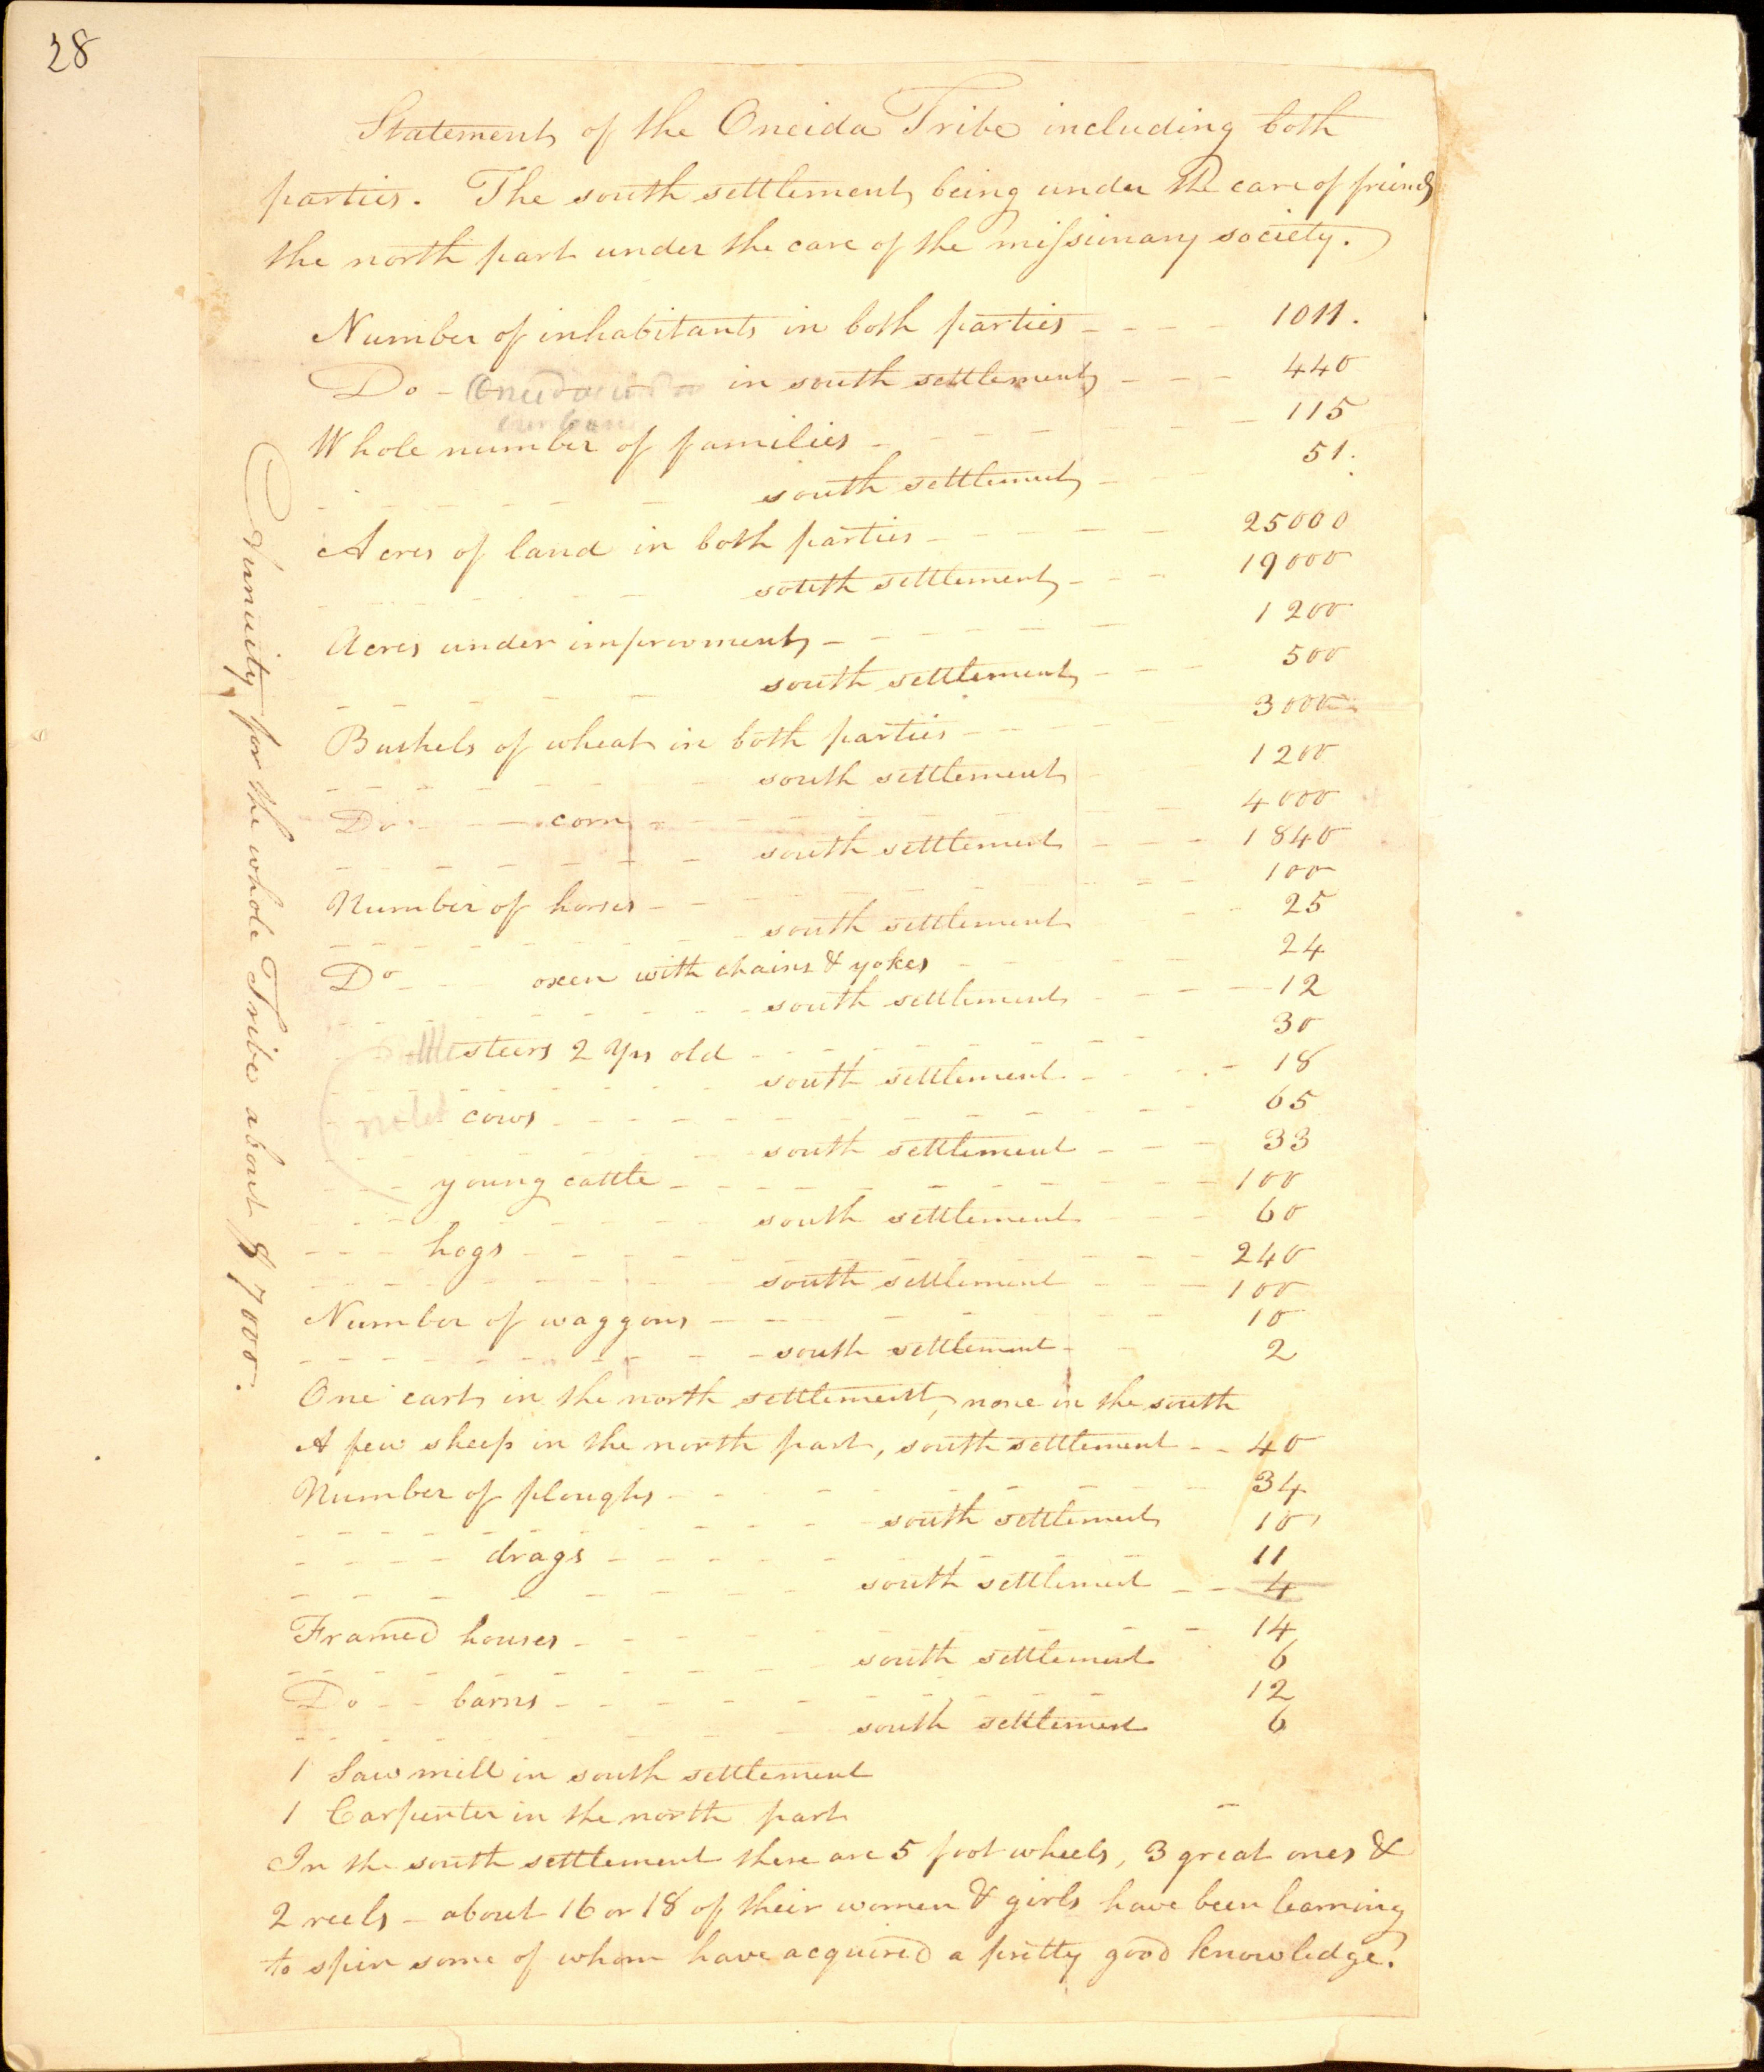 28
Statement of the Oneida Tribe including both
parties. The south settlement being under the care of friends
the north part under the care of the missionary society.
Number of inhabitants in both parties - - - - 1011.
Do - in south settlement - - - 440
Whole number of families - - - - - - - - 115
- - - - - south settlement - - - 51.
Acres of land in both parties - - - - - - 25000
- - - - - south settlement - - - 19000
Acres under improvment - - - - - - 1200
- - - - - south settlement - - - 500
Bushels of wheat in both parties - - - - - 3000
- - - - - - south settlement - - 1200
Do - - - corn - - - - - - - - - 4000
- - - - - - south settlement - - - 1840
Number of horses - - - - - - - - - 100
- - - - - - south settlement - - 25
Do - - - oxen with chains & yokes - - - - 24
- - - - - - - south settlement - - - - 12
steers 2 Yrs old - - - - - - - - 30
- - - - - - south settlement - - - - 18
cows - - - - - - - - - - 65
- - - - - - south settlement - - - 33
- - - young cattle - - - - - - - - - 100
- - - - - - south settlement - - - 60
- - - hogs - - - - - - - - - - 240
- - - - - - - south settlement - - - 100
Number of waggons - - - - - - - - 10
- - - - - - - south settlement - - 2
One cart in the north settlement, none in the south
A few sheep in the north part, south settlement - - 40
Number of ploughs - - - - - - - - 34
- - - - - - - - south settlement 10
- - - - drags - - - - - - - - 11
- - - - - - - south settlement - - 4
Framed houses - - - - - - - - 14
- - - - - - - south settlement 6
Do - - barns - - - - - - - - 12
- - - - - - - south settlement 6
1 Saw mill in south settlement
1 Carpenter in the north part
In the south settlement there are 5 foot wheels, 3 great ones &
2 reels - about 16 or 18 of their women & girls have been learning
to spin some of whom have acquired a pretty good knowledge.
Annuity for the whole Tribe about $700.